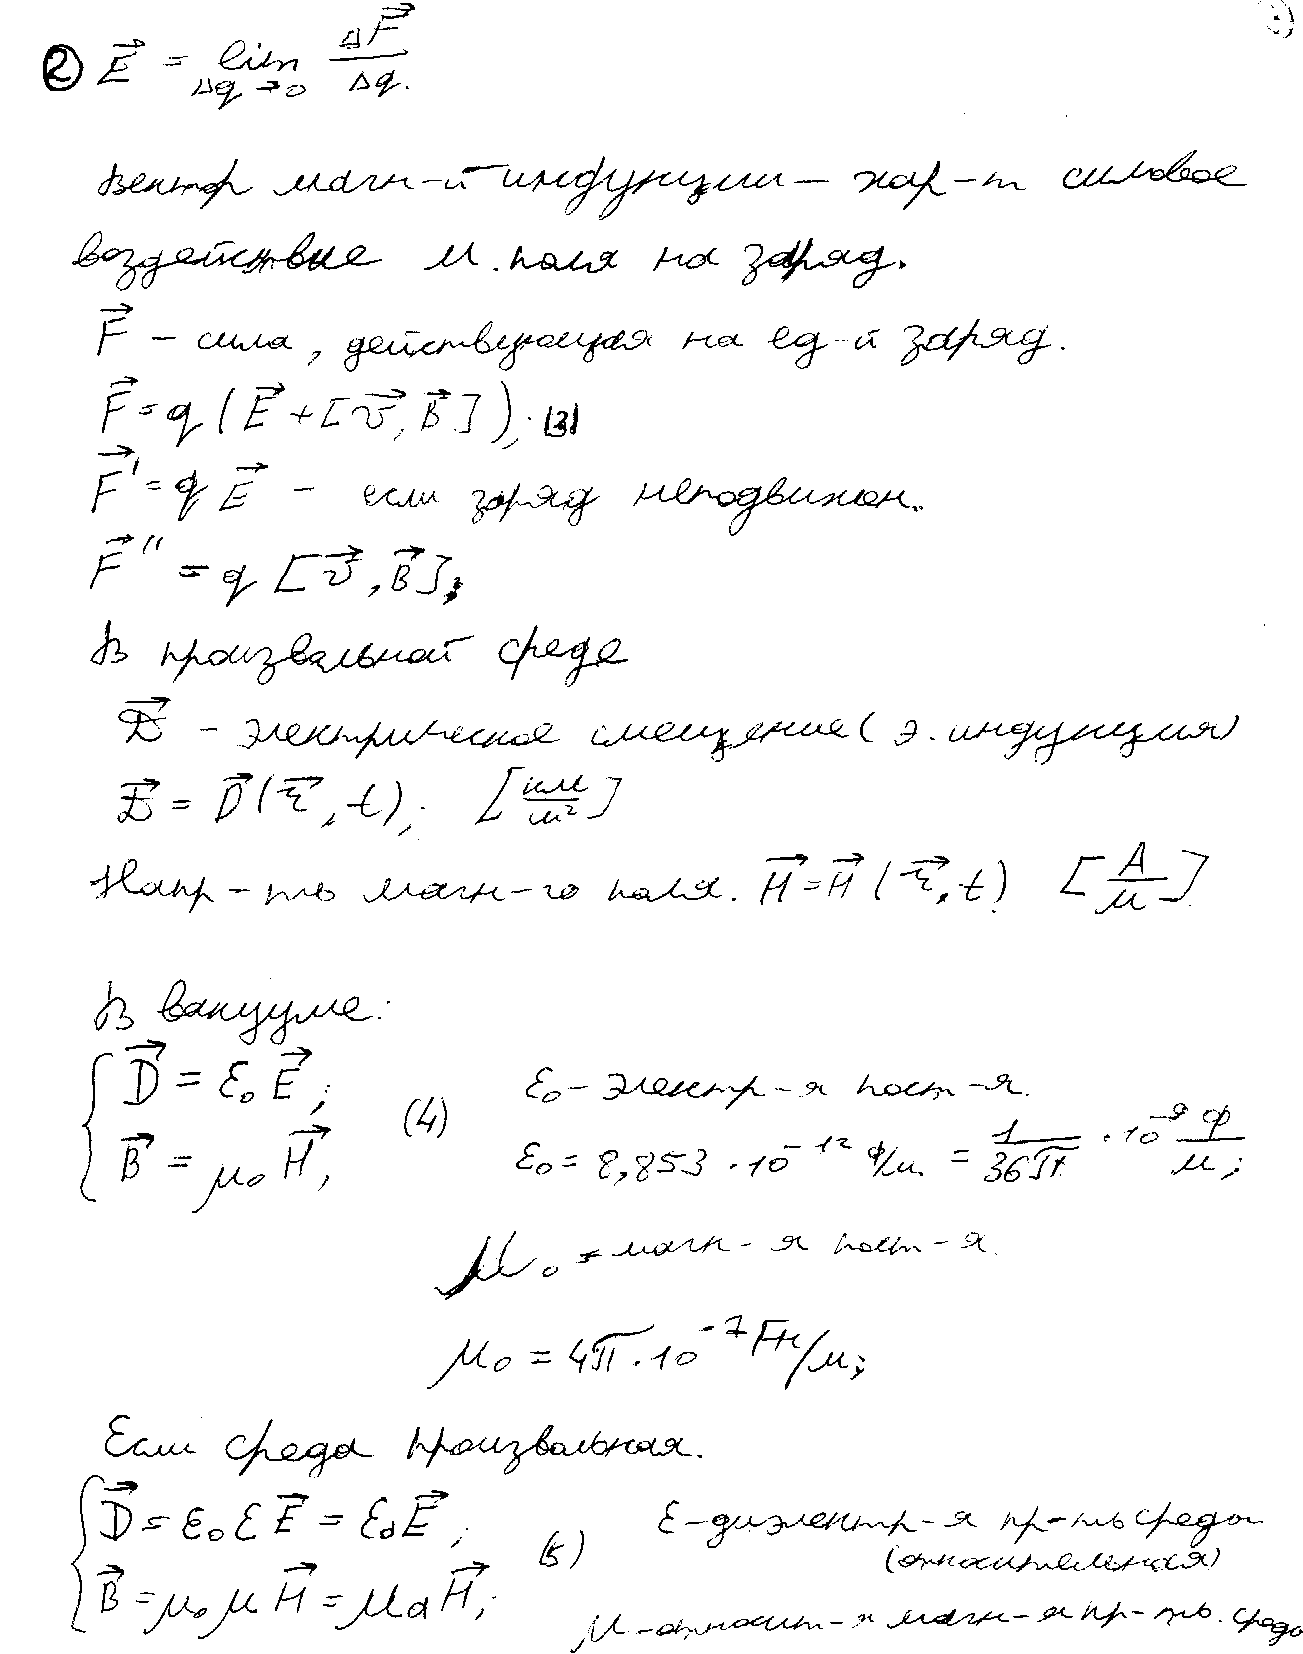 ② E⃗ = lim_{Δq→0} ΔF⃗/Δq.
Вектор магн-й индукции – хар-т силовое
воздействие м. поля на заряд.
F⃗ – сила, действующая на ед-й заряд.
F⃗ = q(E⃗ + [v⃗, B⃗]); (3)
F⃗' = qE⃗ – если заряд неподвижен.
F⃗'' = q[v⃗, B⃗];
В произвальной среде
D⃗ – электрическое смещение (э. индукция)
D⃗ = D⃗(r⃗, t); [кл/м²]
Напр-ть магн-го поля. H⃗ = H⃗(r⃗, t) [А/м]
В вакууме:
D⃗ = ε₀E⃗; ε₀ – электр-я пост-я.
(4)
B⃗ = μ₀H⃗, ε₀ = 8,853 · 10⁻¹² Ф/м. = 1/36π · 10⁻⁹ Ф/м;
μ₀ – магн-я пост-я.
μ₀ = 4π · 10⁻⁷ Гн/м;
Если среда произвальная.
D⃗ = ε₀εE⃗ = εₐE⃗; ε – диэлектр-я пр-ть среды
(5) (относительная)
B⃗ = μ₀μH⃗ = μₐH⃗; μ – относит-я магн-я пр-ть. среды